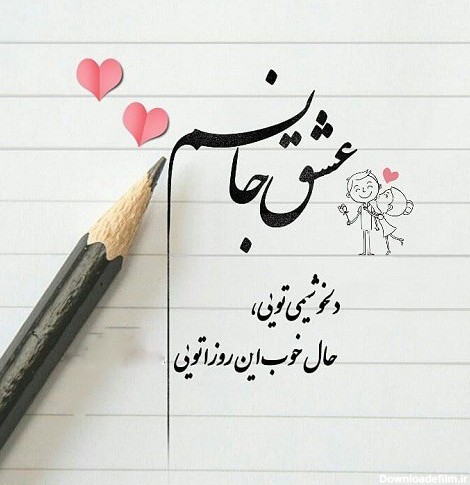 عشق جانم
دلخوشیمی تویی،
حال خوب این روزا تویی
Downloadefilm.ir